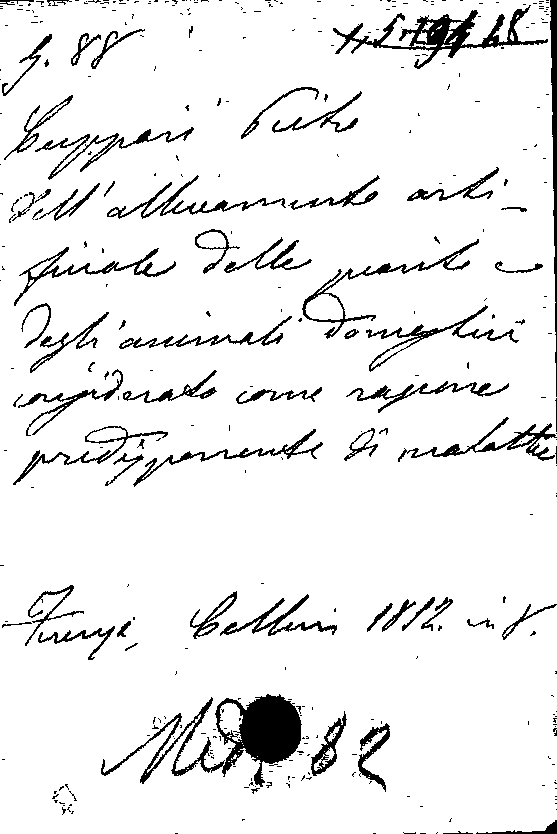 G. 88
Cuppari Pietro
Dell'allevamento arti-
ficiale delle piante e
degli animali domestici
considerato come ragione
predisponente di malattie
Firenze, Cellini 1872. in 8.
Med. 82